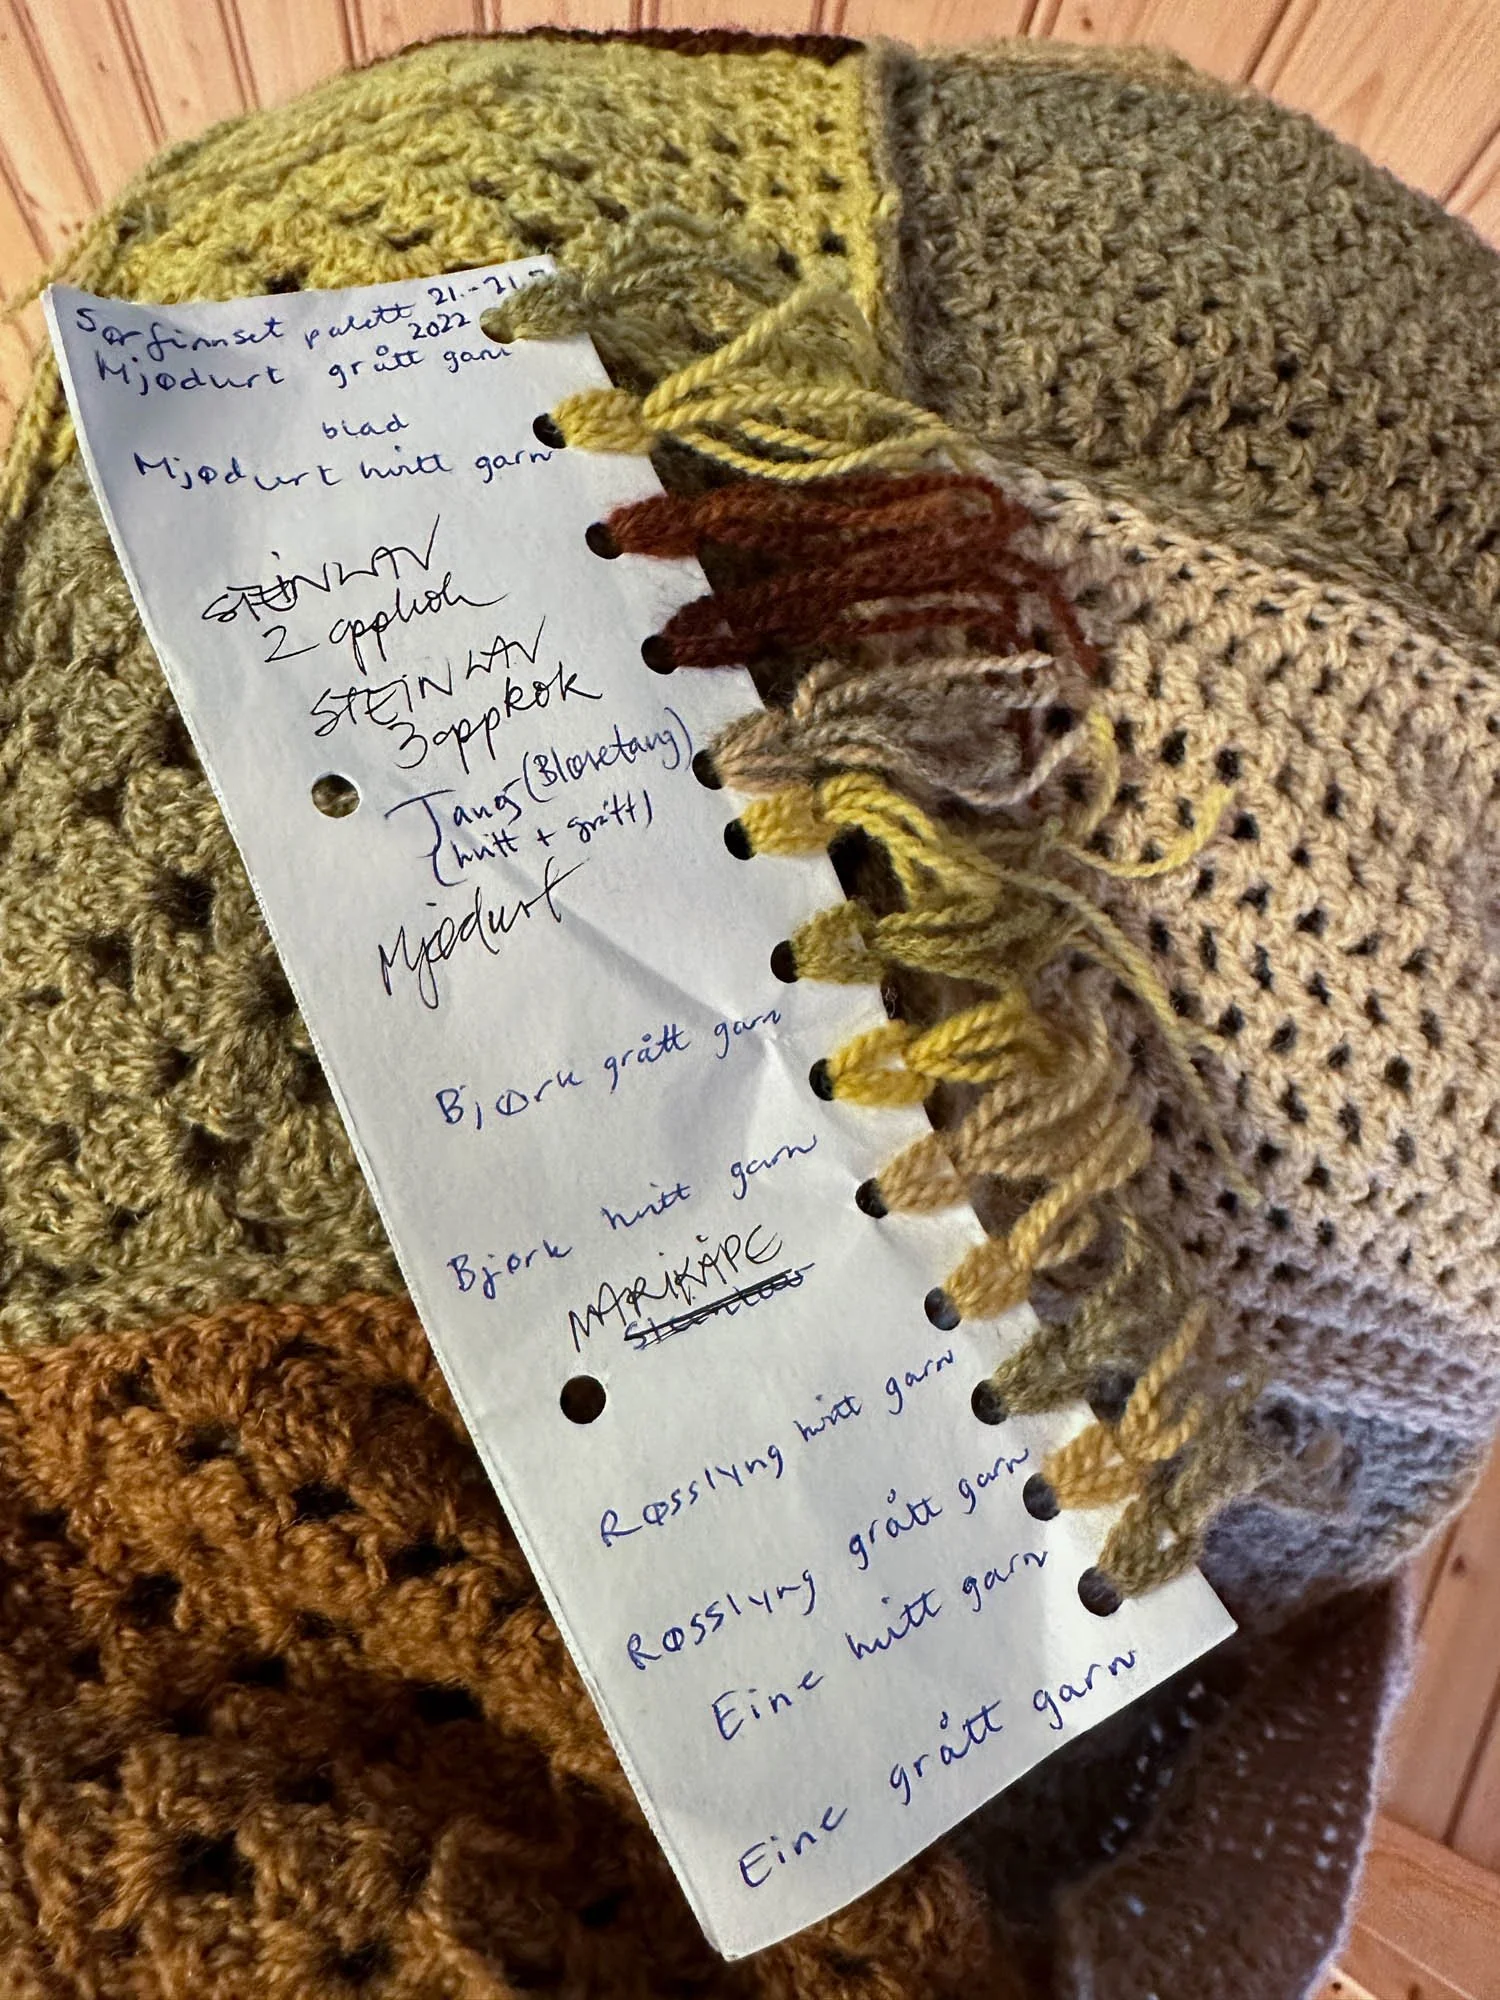 Sørfinnset palett 21.-21.-
2022
Mjødurt grått garn
blad
Mjødurt hvitt garn
STEINLAV
2 oppkok
STEINLAV
3 oppkok
Tang (Blæretang)
(hvitt + grått)
Mjødurt
Bjørk grått garn
Bjørk hvitt garn
MARIKÅPE
Røsslyng hvitt garn
Røsslyng grått garn
Eine hvitt garn
Eine grått garn